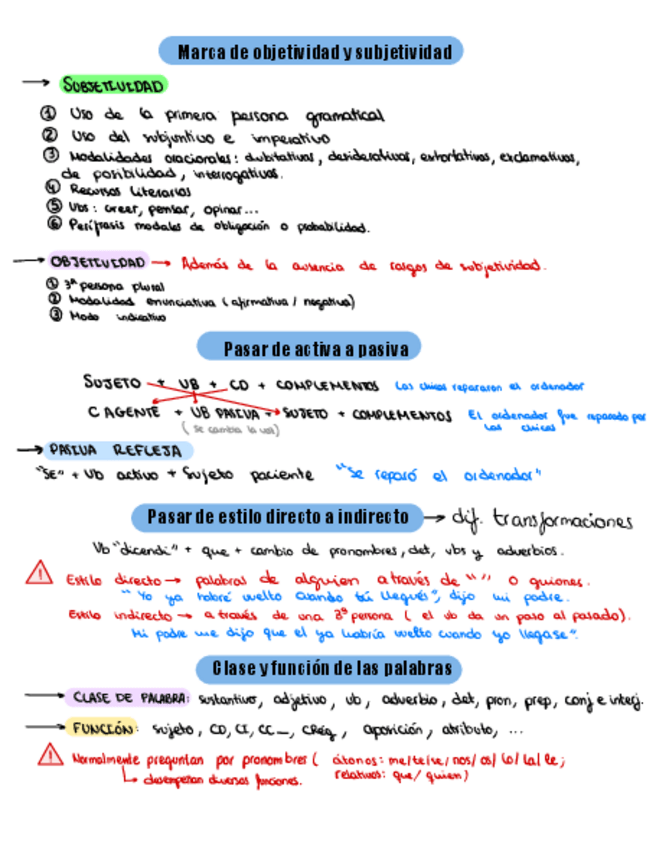 Marca de objetividad y subjetividad
→ SUBJETIVIDAD
① Uso de la primera persona gramatical
② Uso del subjuntivo e imperativo
③ Modalidades oracionales: dubitativas, desiderativas, exhortativas, exclamativas,
de posibilidad, interrogativas.
④ Recursos literarios
⑤ Vbs: creer, pensar, opinar...
⑥ Perífrasis modales de obligación o probabilidad.
→ OBJETIVIDAD → Además de la ausencia de rasgos de subjetividad.
① 3ª persona plural
② Modalidad enunciativa (afirmativa / negativa)
③ Modo indicativo
Pasar de activa a pasiva
SUJETO + VB + CD + COMPLEMENTOS Los chicos repararon el ordenador
C AGENTE + VB PASIVA + SUJETO + COMPLEMENTOS El ordenador fue reparado por
(se cambia la voz) los chicos
→ PASIVA REFLEJA
"SE" + Vb activo + Sujeto paciente "Se reparó el ordenador"
Pasar de estilo directo a indirecto → dif. transformaciones
Vb "dicendi" + que + cambio de pronombres, det, vbs y adverbios.
Estilo directo → palabras de alguien a través de " " o guiones.
"Yo ya habré vuelto cuando tú llegues", dijo mi padre.
Estilo indirecto → a través de una 3ª persona (el vb da un paso al pasado).
Mi padre me dijo que el ya habría vuelto cuando yo llegase".
Clase y función de las palabras
→ CLASE DE PALABRA: sustantivo, adjetivo, vb, adverbio, det, pron, prep, conj e interj.
→ FUNCIÓN: sujeto, CD, CI, CC_, CRég, aposición, atributo, ...
Normalmente preguntan por pronombres (átonos: me/te/se/nos/os/lo/la/le;
↳ desempeñan diversas funciones. relativos: que/quien)